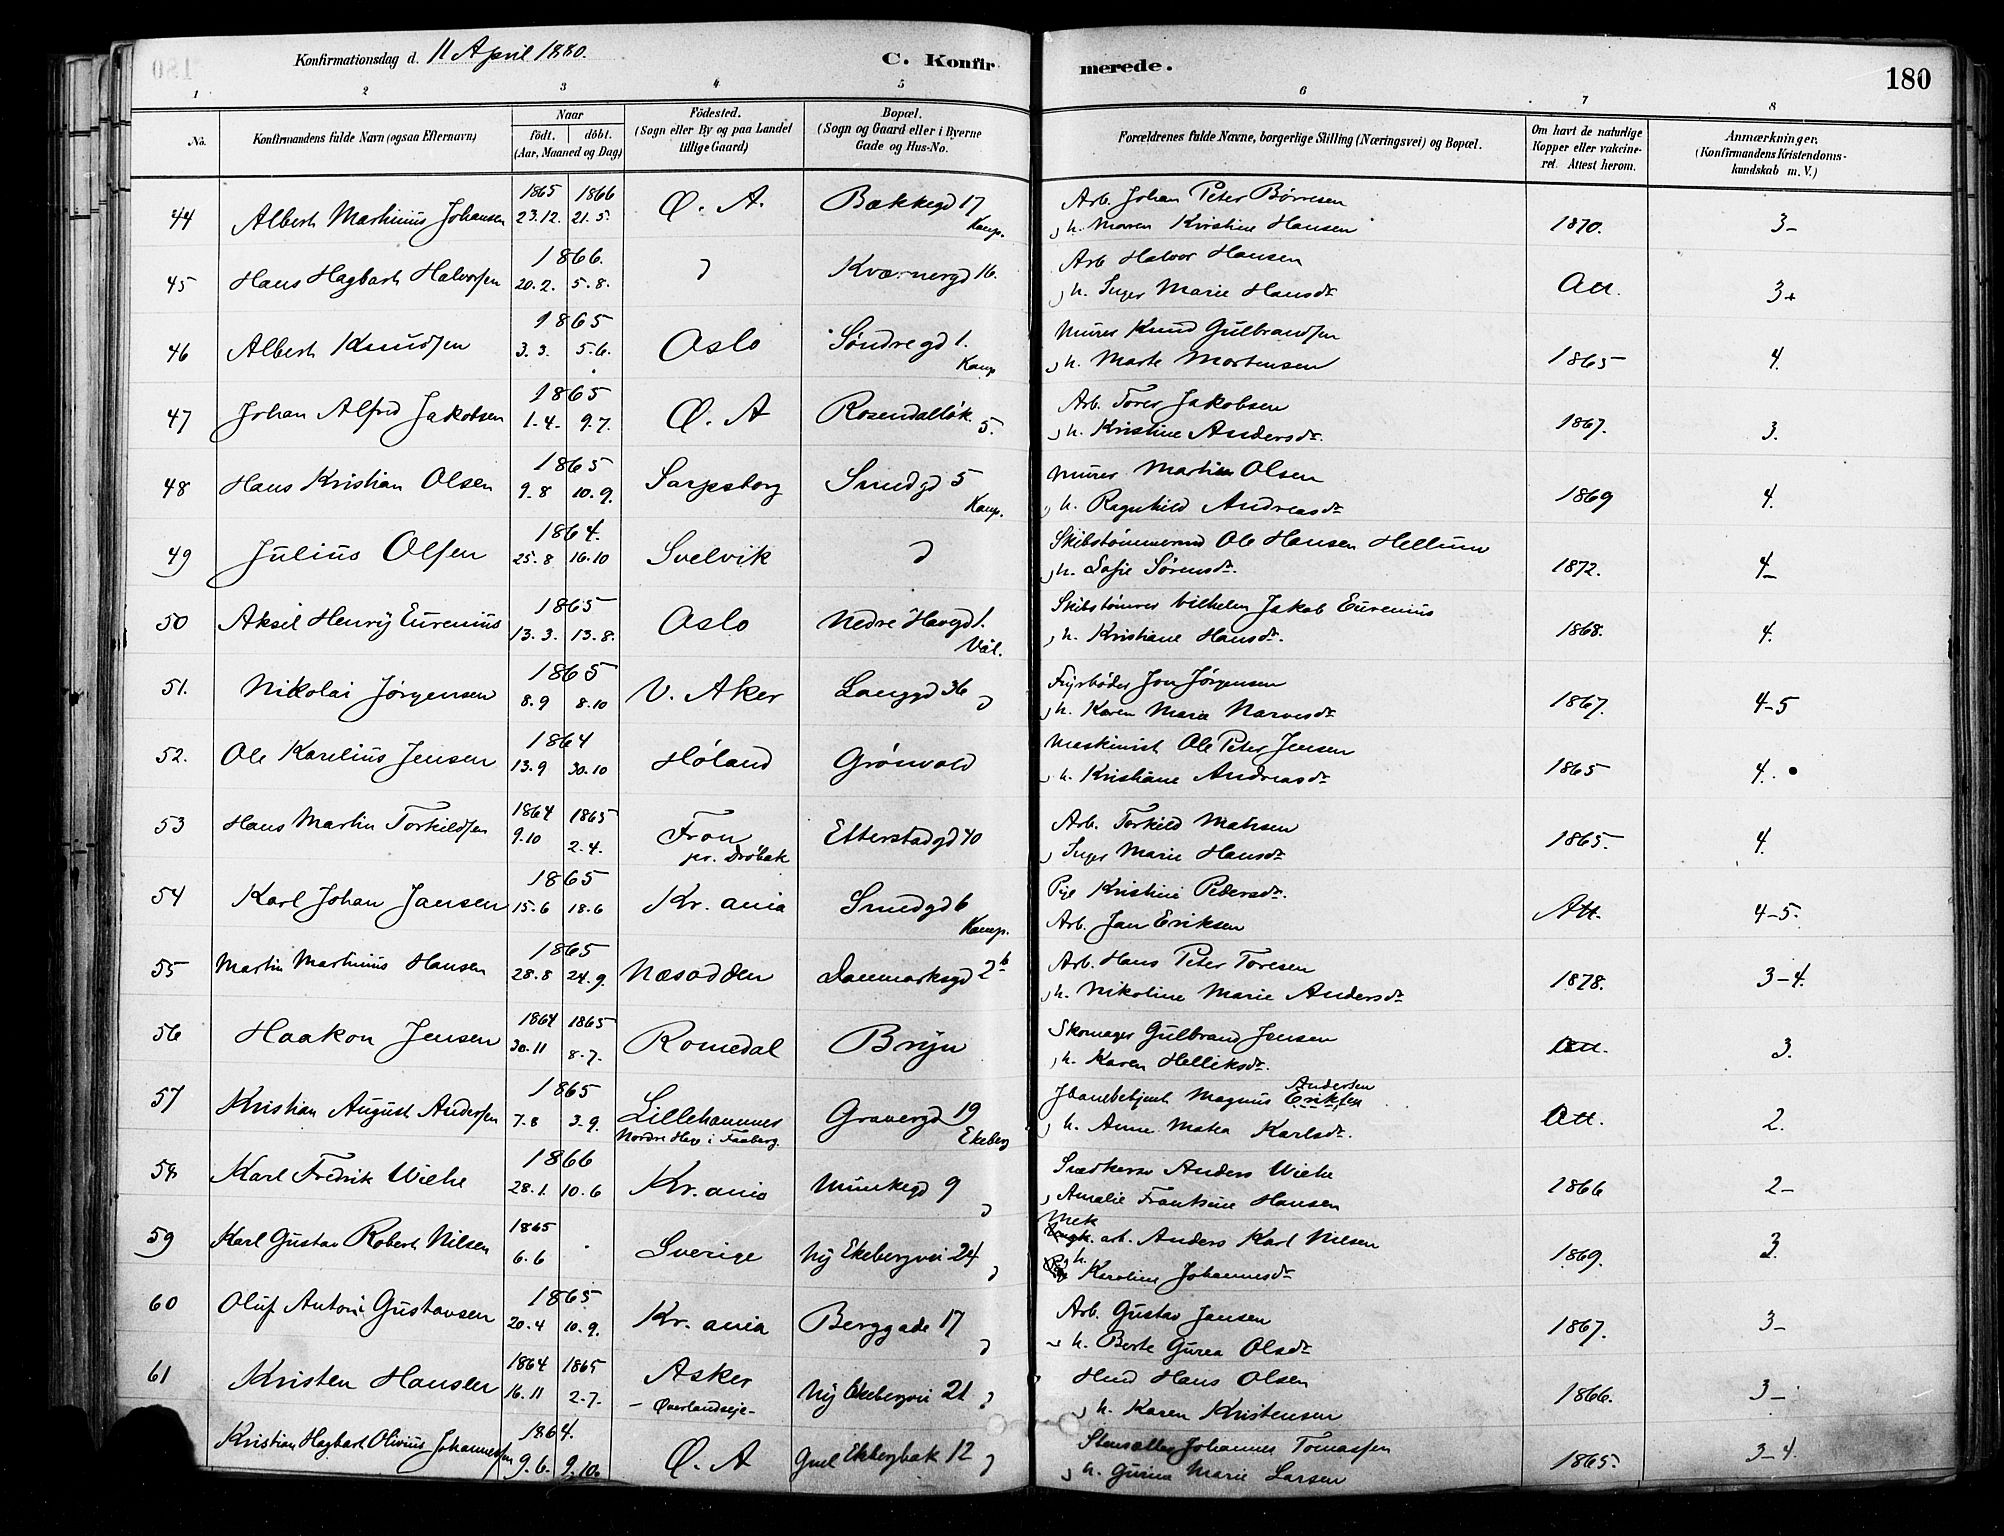 Konfirmationsdag d. 11 April 1880.
C. Konfir merede.
180
1 2 3 4 5 6 7 8
No.
Konfirmandens fulde Navn (ogsaa Efternavn)
Naar
födt. döbt.
(Aar, Maaned og Dag)
Födested.
(Sogn eller By og paa Landet
tillige Gaard)
Bopæl.
(Sogn og Gaard eller i Byerne
Gade og Hus-No.
Forældrenes fulde Navne, borgerlige Stilling (Næringsvei) og Bopæl.
Om havt de naturlige
Kopper eller vakcine-
ret. Attest herom.
Anmærkninger.
(Konfirmandens Kristendoms-
kundskab m. V.)
44 Albert Martinius Johansen 1865 23.12. 1866 21.5. Ø. A. Bækkegd 17 Kamp.
Arb. Johan Peter Börresen
h. Maren Kirstine Hansen 1870. 3-
45 Hans Hagbart Halvorsen 1866. 20.2. 5.8. d Kværnergd 16.
Arb Halvor Hansen
h. Inger Marie Hansdr Att. 3+
46 Albert Knudsen 1865 3.3. 5.6. Oslo Søndregd 1. Kamp
Murer Knud Gulbrandsen
h. Marte Mortensen 1865 4.
47 Johan Alfred Jakobsen 1865 1.4. 9.7. Ø. A Rosendalløk. 5.
Arb. Torer Jakobsen
h. Kristine Andersdr. 1867. 3.
48 Hans Kristian Olsen 1865 9.8 10.9. Sarpsborg Smedgd 5 Kamp.
Murer Martin Olsen
h. Ragnhild Andreasdr 1869 4.
49 Julius Olsen 1864. 25.8 16.10 Svelvik d
Skibstømmermd Ole Hansen Hellum
h. Sofie Sørensdr. 1872. 4-
50 Aksel Henry Eurenius 1865 13.3. 13.8. Oslo Nedre Havgd 1. Vål.
Skibstømrer Vilhelm Jakob Eurenius
h. Kristiane Hansdr. 1868. 4.
51. Nikolai Jørgensen 1865 8.9 8.10 V. Aker Langgd 36 d
Fyrbøder Jon Jørgensen
h. Karen Marie Narvesdr 1867. 4-5
52. Ole Karelius Jensen 1864 13.9 30.10 Høland Grønvold
Maskinist Ole Peter Jensen
h. Kristiane Andreasdr 1865 4.
53 Hans Martin Torkildsen 1864 9.10 1865 2.4. Fron pr. Drøbak Etterstadgd 40
Arb. Torkild Matisen
Inger Marie Hansdr 1865. 4.
54 Karl Johan Jansen 1865 15.6 18.6 Kr. ania Smedgd 6 Kamp.
Pige Kristine Pedersdr.
Arb. Jan Eriksen Att. 4-5.
55 Martin Martinius Hansen 1865 28.8 24.9. Næsodden Danmarksgd 2b
Arb. Hans Peter Toresen
h. Nikoline Marie Andersdr 1878. 3-4.
56 Haakon Jensen 1864 30.11 1865 8.7. Romedal Bryn
Skomager Gulbrand Jensen
h. Karen Helliksdr. Att. 3.
57 Kristian August Andersen 1865 7.8 3.9. Lillehammer Nordre Hov i Faaberg. Gravergd 19 Ekeberg
Jbanebetjent Magnus Eriksen Andersen
h. Anne Matea Karlsdr. Att. 2.
58 Karl Fredrik Wiehe 1866 28.1. 10.6 Kr. ania Munkegd 9 d
Snedkersv Anders Wiehe
Amalie Frantsine Hansen 1866 2-
59 Karl Gustav Robert Nilsen 1865 6.6 Sverige Ny Ekebergvei 24 d
Mek arb. Anders Karl Nilsen
h. Karoline Johannesdr 1869. 3.
60 Oluf Anton Gustavsen 1865 20.4 10.9. Kr. ania Berggade 17 d
Arb. Gustav Jansen
h. Berte Gurea Olsdr 1867. 3-
61 Kristen Hansen 1864 16.11 1865 2.7. Asker - Øverlandseje- Ny Ekebergvei 21 d
Hmd Hans Olsen
h. Karen Kristensen 1866. 3-
Kristian Hagbart Olivius Johannessen 1864. 9.6. 9.10. Ø. A Gml Ekebergbak 12 d
Stensætter Johannes Tomassen
h. Gurine Marie Larsen 1865. 3-4.